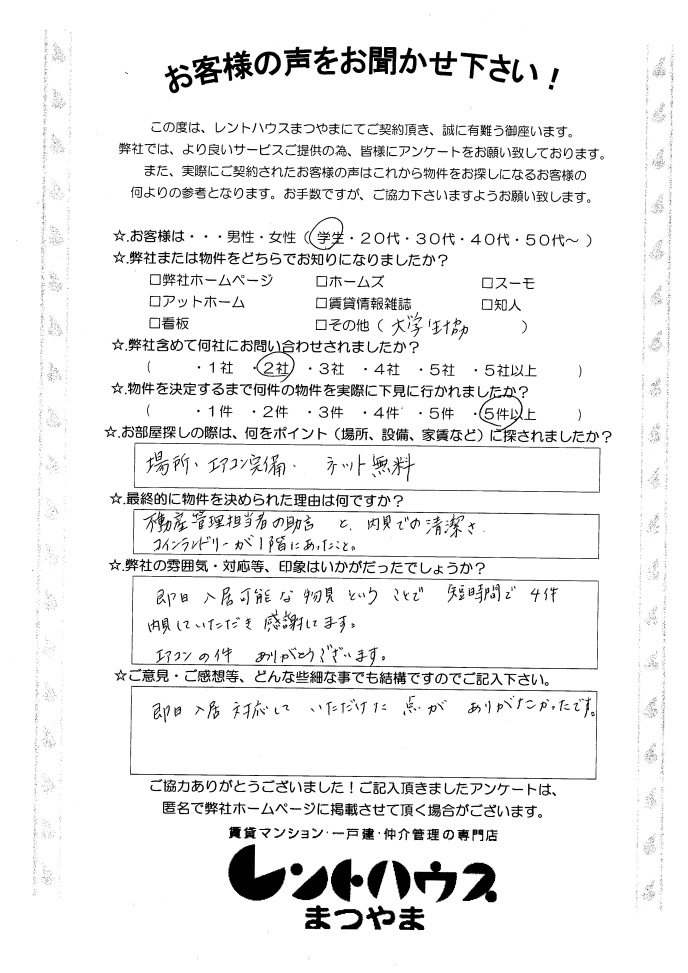 お客様の声をお聞かせ下さい！
この度は、レントハウスまつやまにてご契約頂き、誠に有難う御座います。
弊社では、より良いサービスご提供の為、皆様にアンケートをお願い致しております。
また、実際にご契約されたお客様の声はこれから物件をお探しになるお客様の
何よりの参考となります。お手数ですが、ご協力下さいますようお願い致します。
☆.お客様は・・・男性・女性（学生・２０代・３０代・４０代・５０代～）
☆.弊社または物件をどちらでお知りになりましたか？
□弊社ホームページ □ホームズ □スーモ
□アットホーム □賃貸情報雑誌 □知人
□看板 □その他（大学生協）
☆.弊社含めて何社にお問い合わせされましたか？
（ ・１社 ・２社 ・３社 ・４社 ・５社 ・５社以上 ）
☆.物件を決定するまで何件の物件を実際に下見に行かれましたか？
（ ・１件 ・２件 ・３件 ・４件 ・５件 ・５件以上 ）
☆.お部屋探しの際は、何をポイント（場所、設備、家賃など）に探されましたか？
場所、エアコン完備、ネット無料
☆.最終的に物件を決められた理由は何ですか？
不動産管理担当者の助言と、内見での清潔さ、
コインランドリーが1階にあったこと。
☆.弊社の雰囲気・対応等、印象はいかがだったでしょうか？
即日入居可能な物見ということで 短時間で4件
内見していただき感謝してます。
エアコンの件 ありがとうございます。
☆ご意見・ご感想等、どんな些細な事でも結構ですのでご記入下さい。
即日入居対応していただけた点がありがたかったです。
ご協力ありがとうございました！ご記入頂きましたアンケートは、
匿名で弊社ホームページに掲載させて頂く場合がございます。
賃貸マンション・一戸建・仲介管理の専門店
レントハウス
まつやま